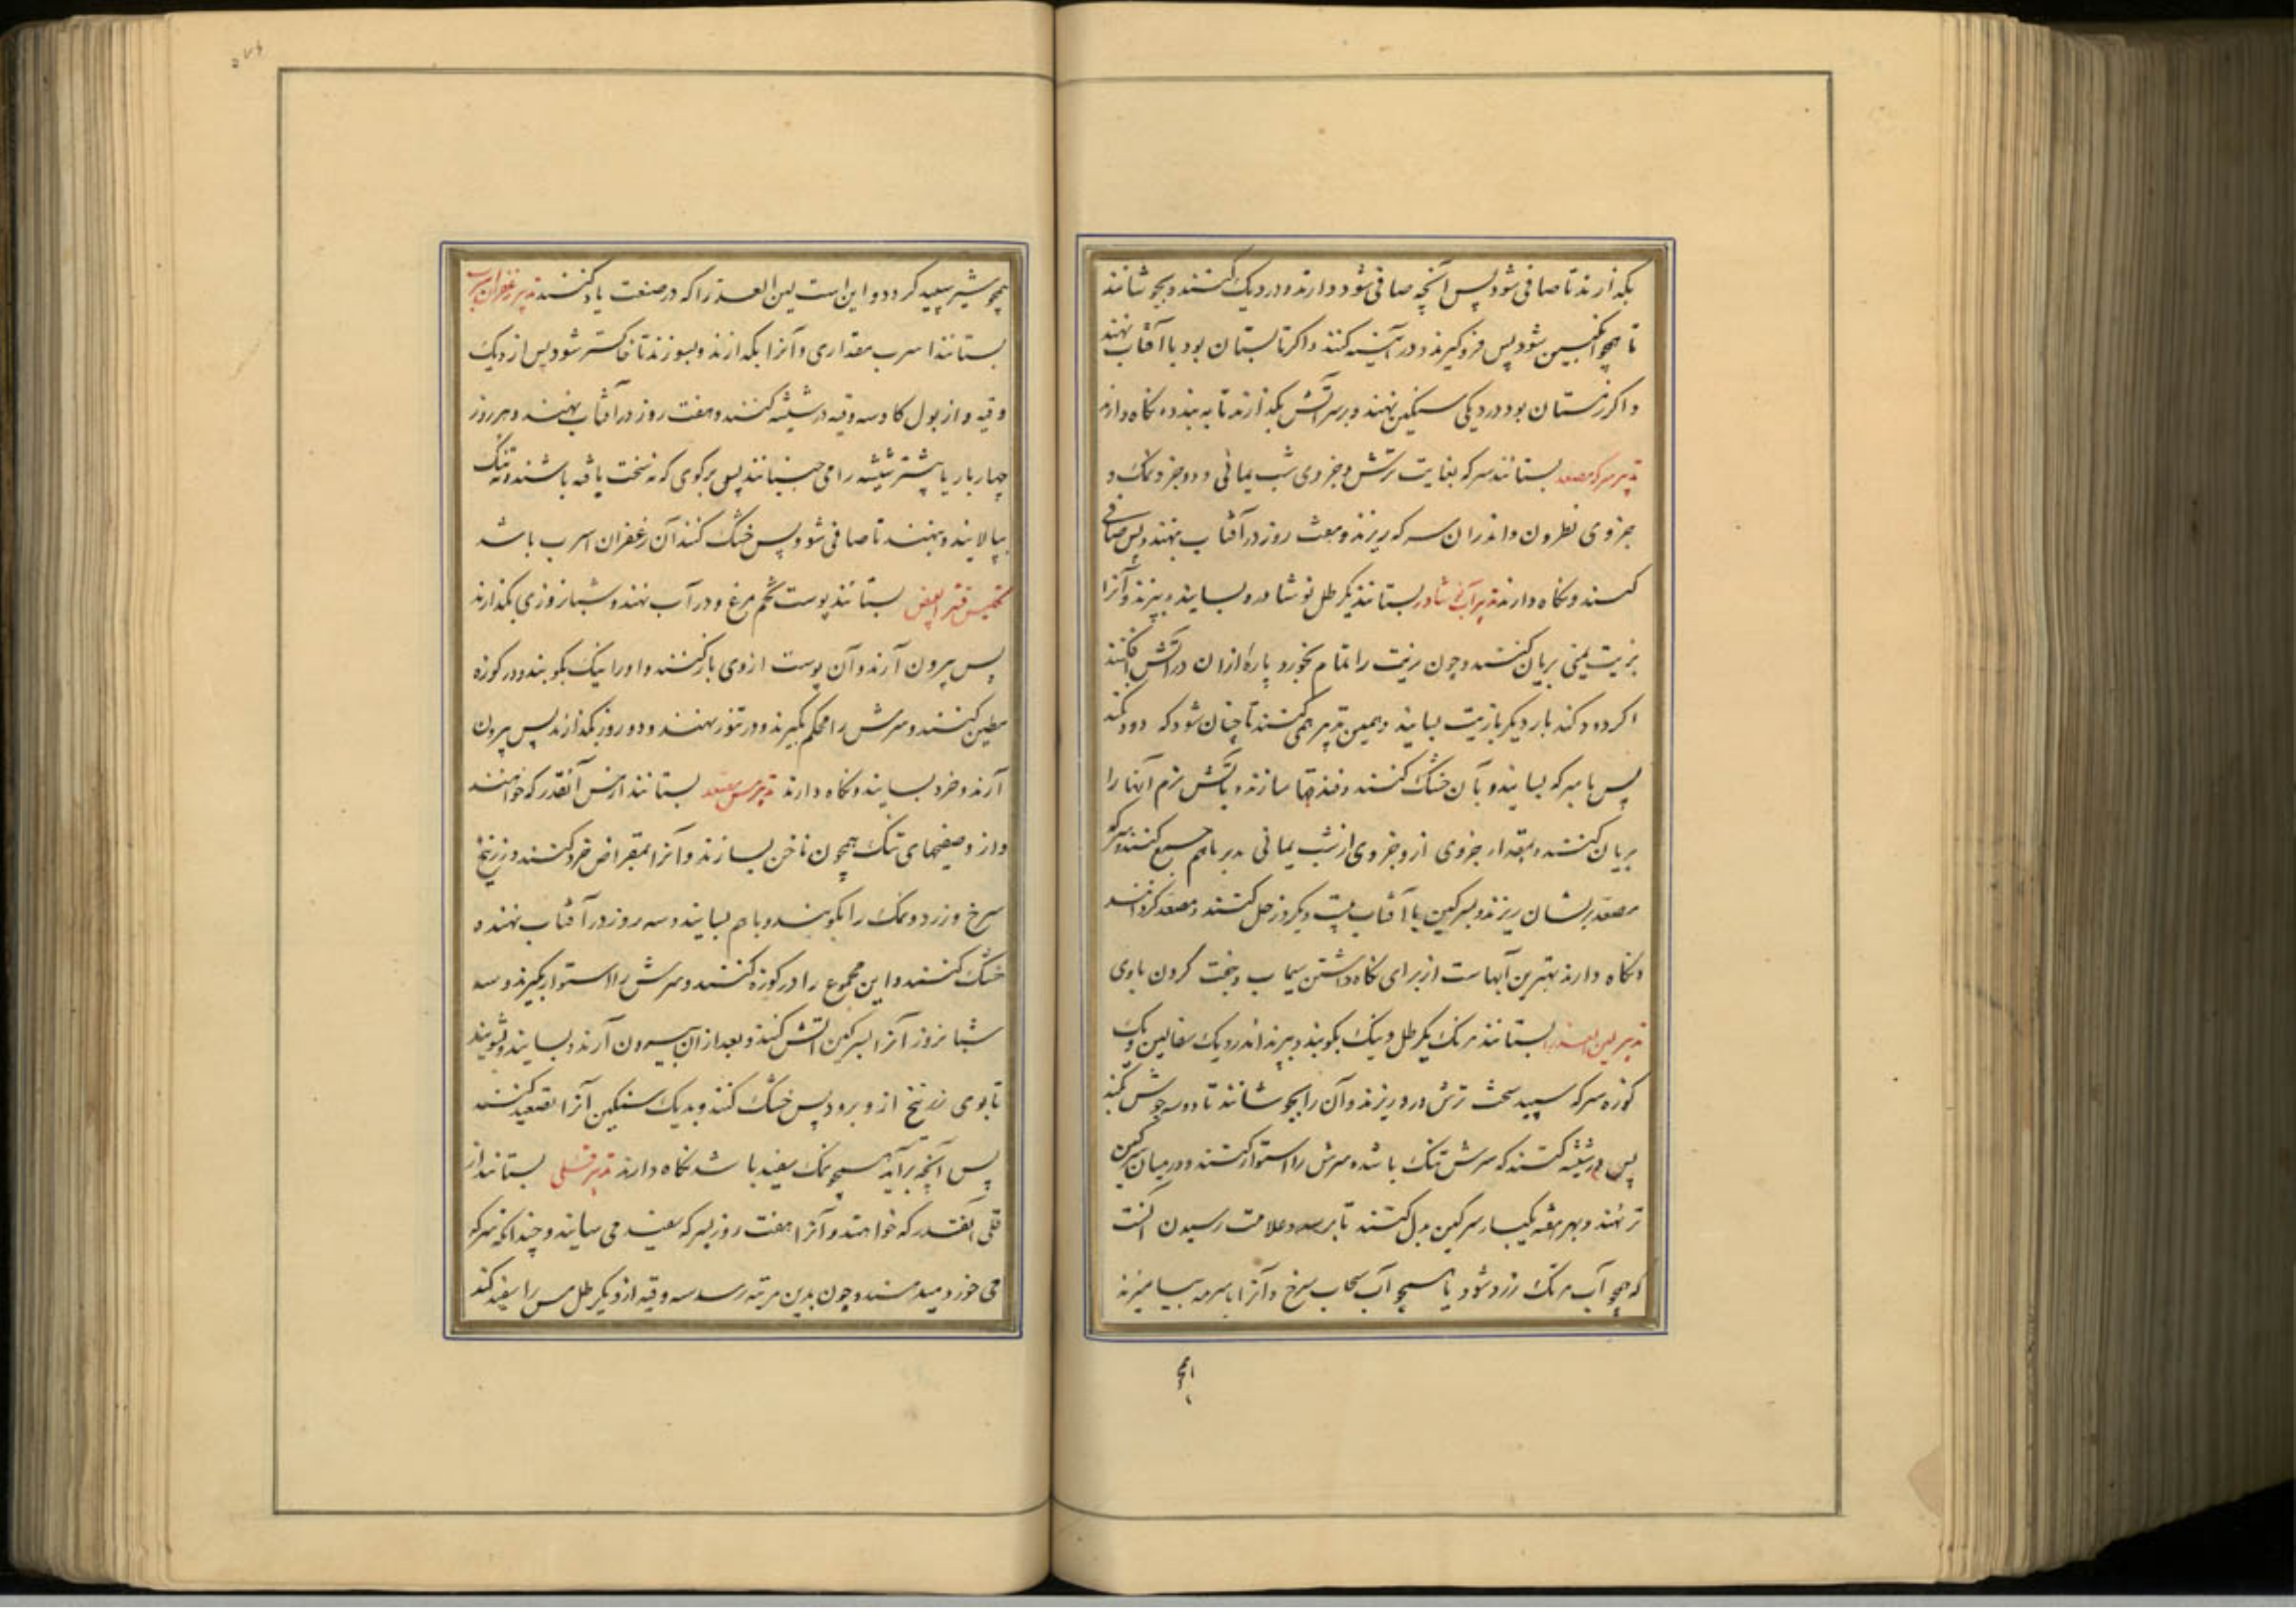 بکذارند تا صافی شود پس آنچه صافی شود دارند و در دیک کنند و بجوشانند
تا همچو انکبین شود پس فرو کیرند و در آبکینه کنند و اکر تابستان بود با آفتاب نهند
و اکر زمستان بود در دیکی سنکین نهند و بر سر آتش بکذارند تا به بندد و نکاه دارند
تدبیر سرکه مصعد بستانند سرکه بغایت ترش و جزوی شب یمانی و دو جزو نمک و
جزوی نطرون و اندران سرکه ریزند و هفت روز در آفتاب نهند و پس صافی
کنند و نکاه دارند تدبیر آب نوشادر بستانند یکرطل نوشادر و بسایند و ببیزند و آنرا
بزیت یمنی بریان کنند و چون زیت را تمام بخورد پاره ازان در آتش افکنند
اکر دود کند بار دیکر با زیت بسایند و همین تدبیر همی کنند تا چنان شود که دود نکند
پس با سرکه بسایند و بآن خشک کنند و بندقها سازند و بآتش نرم آنها را
بریان کنند و بمقدار جزوی ازو جزوی از شب یمانی مدبر باهم جمع کنند و سرکه
مصعد بریشان ریزند و بسرکین یا آفتاب بیست و یکروز حل کنند و مصعد کردانند
و نکاه دارند بهترین آبهاست از برای نکاه داشتن سیماب و سخت کردن باوی
تدبیر لبن العذرا بستانند مرتک یکرطل و نیک بکوبند و ببیزند اندر دیک سفالین و یک
کوزه سرکه سپید سخت ترش درو ریزند و آن را بجوشانند تا دو سه جوش بکند
پس در شیشه کنند که سرش تنک باشد و سرش را استوار کنند و در میان سرکین
تر نهند و بهر هفته یکبار سرکین بدل کنند تا برسد و علامت رسیدن آنست
که همچو آب مرتک زرد شود یا همچو آب سحاب سرخ و آنرا با سرمه بیامیزند
همچو
همچو شیر سپید کردد و این است لبن العذرا که در صنعت یاد کنند تدبیر زعفران اسرب
بستانند اسرب مقداری و آنرا بکدازند و بسوزند تا خاکستر شود پس از دیک
وقیه و از بول کاو سه وقیه در شیشه کنند و هفت روز در آفتاب نهند و هر روز
چهار بار یا پیشتر شیشه را می جنبانند پس برکوی که نه سخت بافه باشند و نه تنک
بپالایند و بنهند تا صافی شود پس خشک کنند آن زعفران اسرب باشد
تکلیس قشر البیض بستانند پوست تخم مرغ و در آب نهند و شبانروزی بکذارند
پس بیرون آرند و آن پوست ازوی باز کنند و او را نیک بکوبند و در کوزه
مطین کنند و سرش را محکم بکیرند و در تنور نهند و دو روز بکذارند پس بیرون
آرند و خرد بسایند و نکاه دارند تدبیر مس مصعد بستانند از مس آنقدر که خواهند
و ازو صفیحهای تنک همچون ناخن بسازند و آنرا بمقراض خرد کنند و زرنیخ
سرخ و زرد و نمک را بکوبند و باهم بسایند و سه روز در آفتاب نهند و
خشک کنند و این مجموع را در کوزه کنند و سرش را استوار بکیرند و سه
شبانروز آنرا بسرکین آتش کنند و بعد از آن بیرون آرند و بسایند و بشویند
تا بوی زرنیخ ازو برود پس خشک کنند و بدیک سنکین آنرا تصعید کنند
پس آنچه برآید همچو نمک سفید باشد نکاه دارند تدبیر قلی بستانند از
قلی آنقدر که خواهند و آنرا هفت روز بسرکه سفید می سایند و چندانکه سرکه
می خورد میدهند و چون بدین مرتبه رسد سه وقیه ازو یکرطل مس را سفید کند